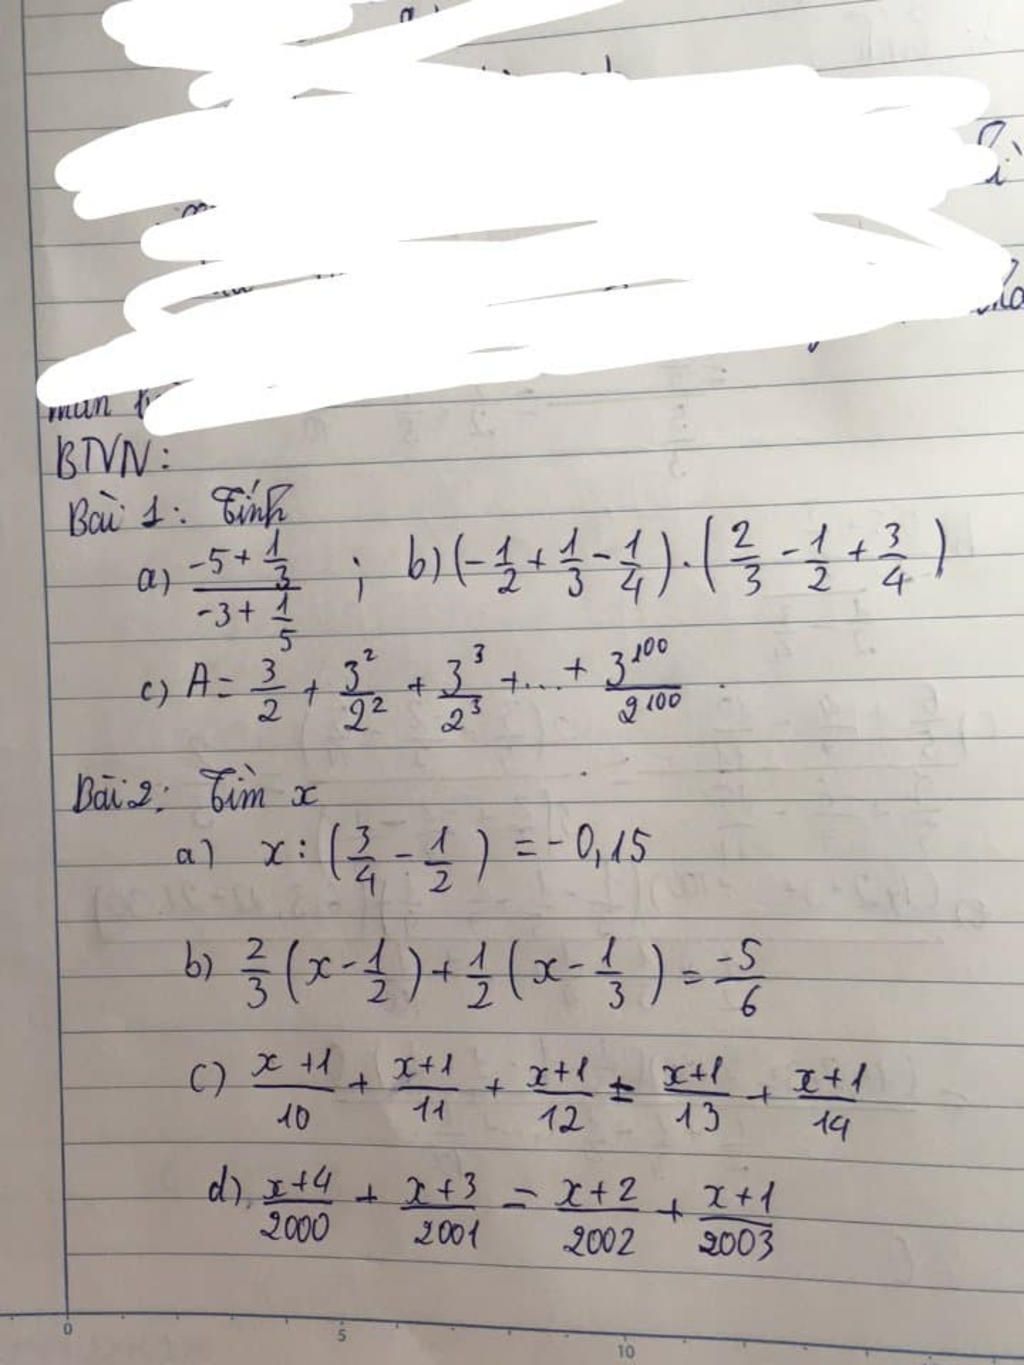 BTVN:
Bài 1: Tính
a) (-5 + 1/3)/(-3 + 1/5) ; b) (-1/2 + 1/3 - 1/4) . (2/3 - 1/2 + 3/4)
c) A = 3/2 + 3²/2² + 3³/2³ + ... + 3¹⁰⁰/2¹⁰⁰
Bài 2: Tìm x
a) x : (3/4 - 1/2) = - 0,15
b) 2/3 (x - 1/2) + 1/2 (x - 1/3) = -5/6
c) (x+1)/10 + (x+1)/11 + (x+1)/12 = (x+1)/13 + (x+1)/14
d) (x+4)/2000 + (x+3)/2001 = (x+2)/2002 + (x+1)/2003
0 5 10